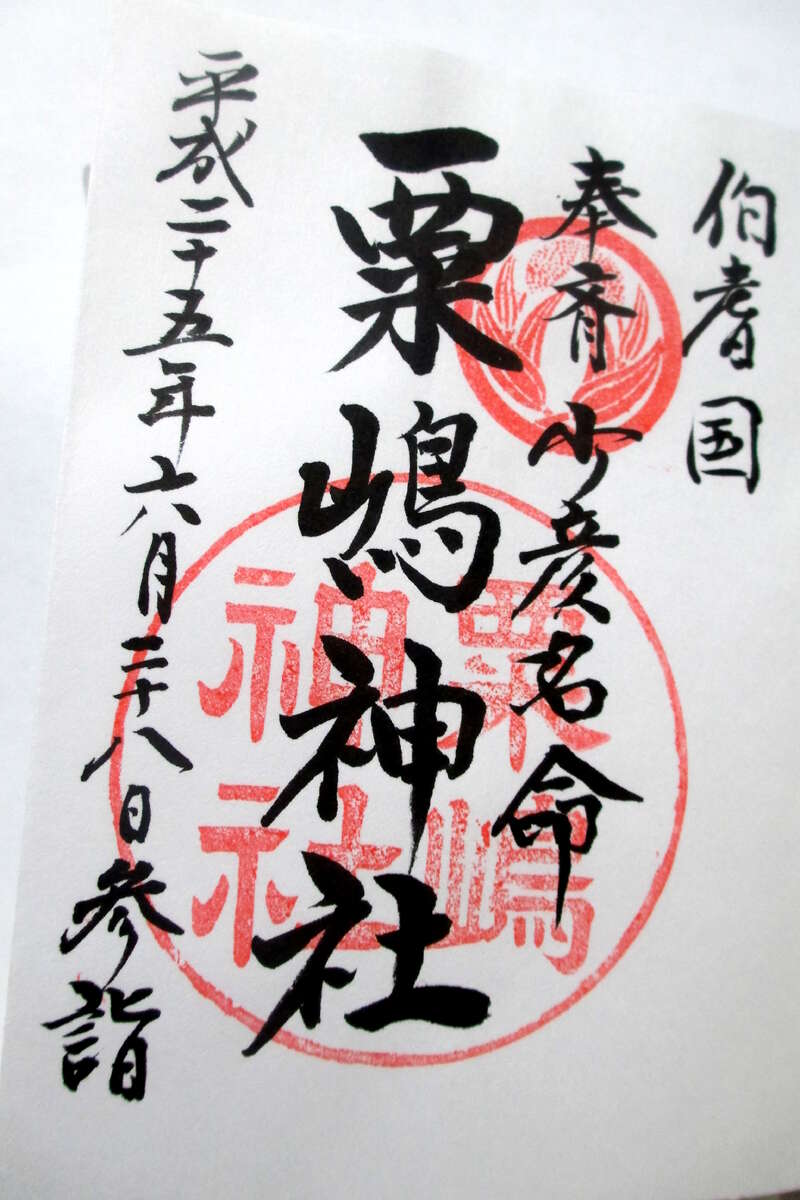 伯耆国
奉斉 少彦名命
粟嶋神社
平成二十五年六月二十八日参詣
粟嶋
神社